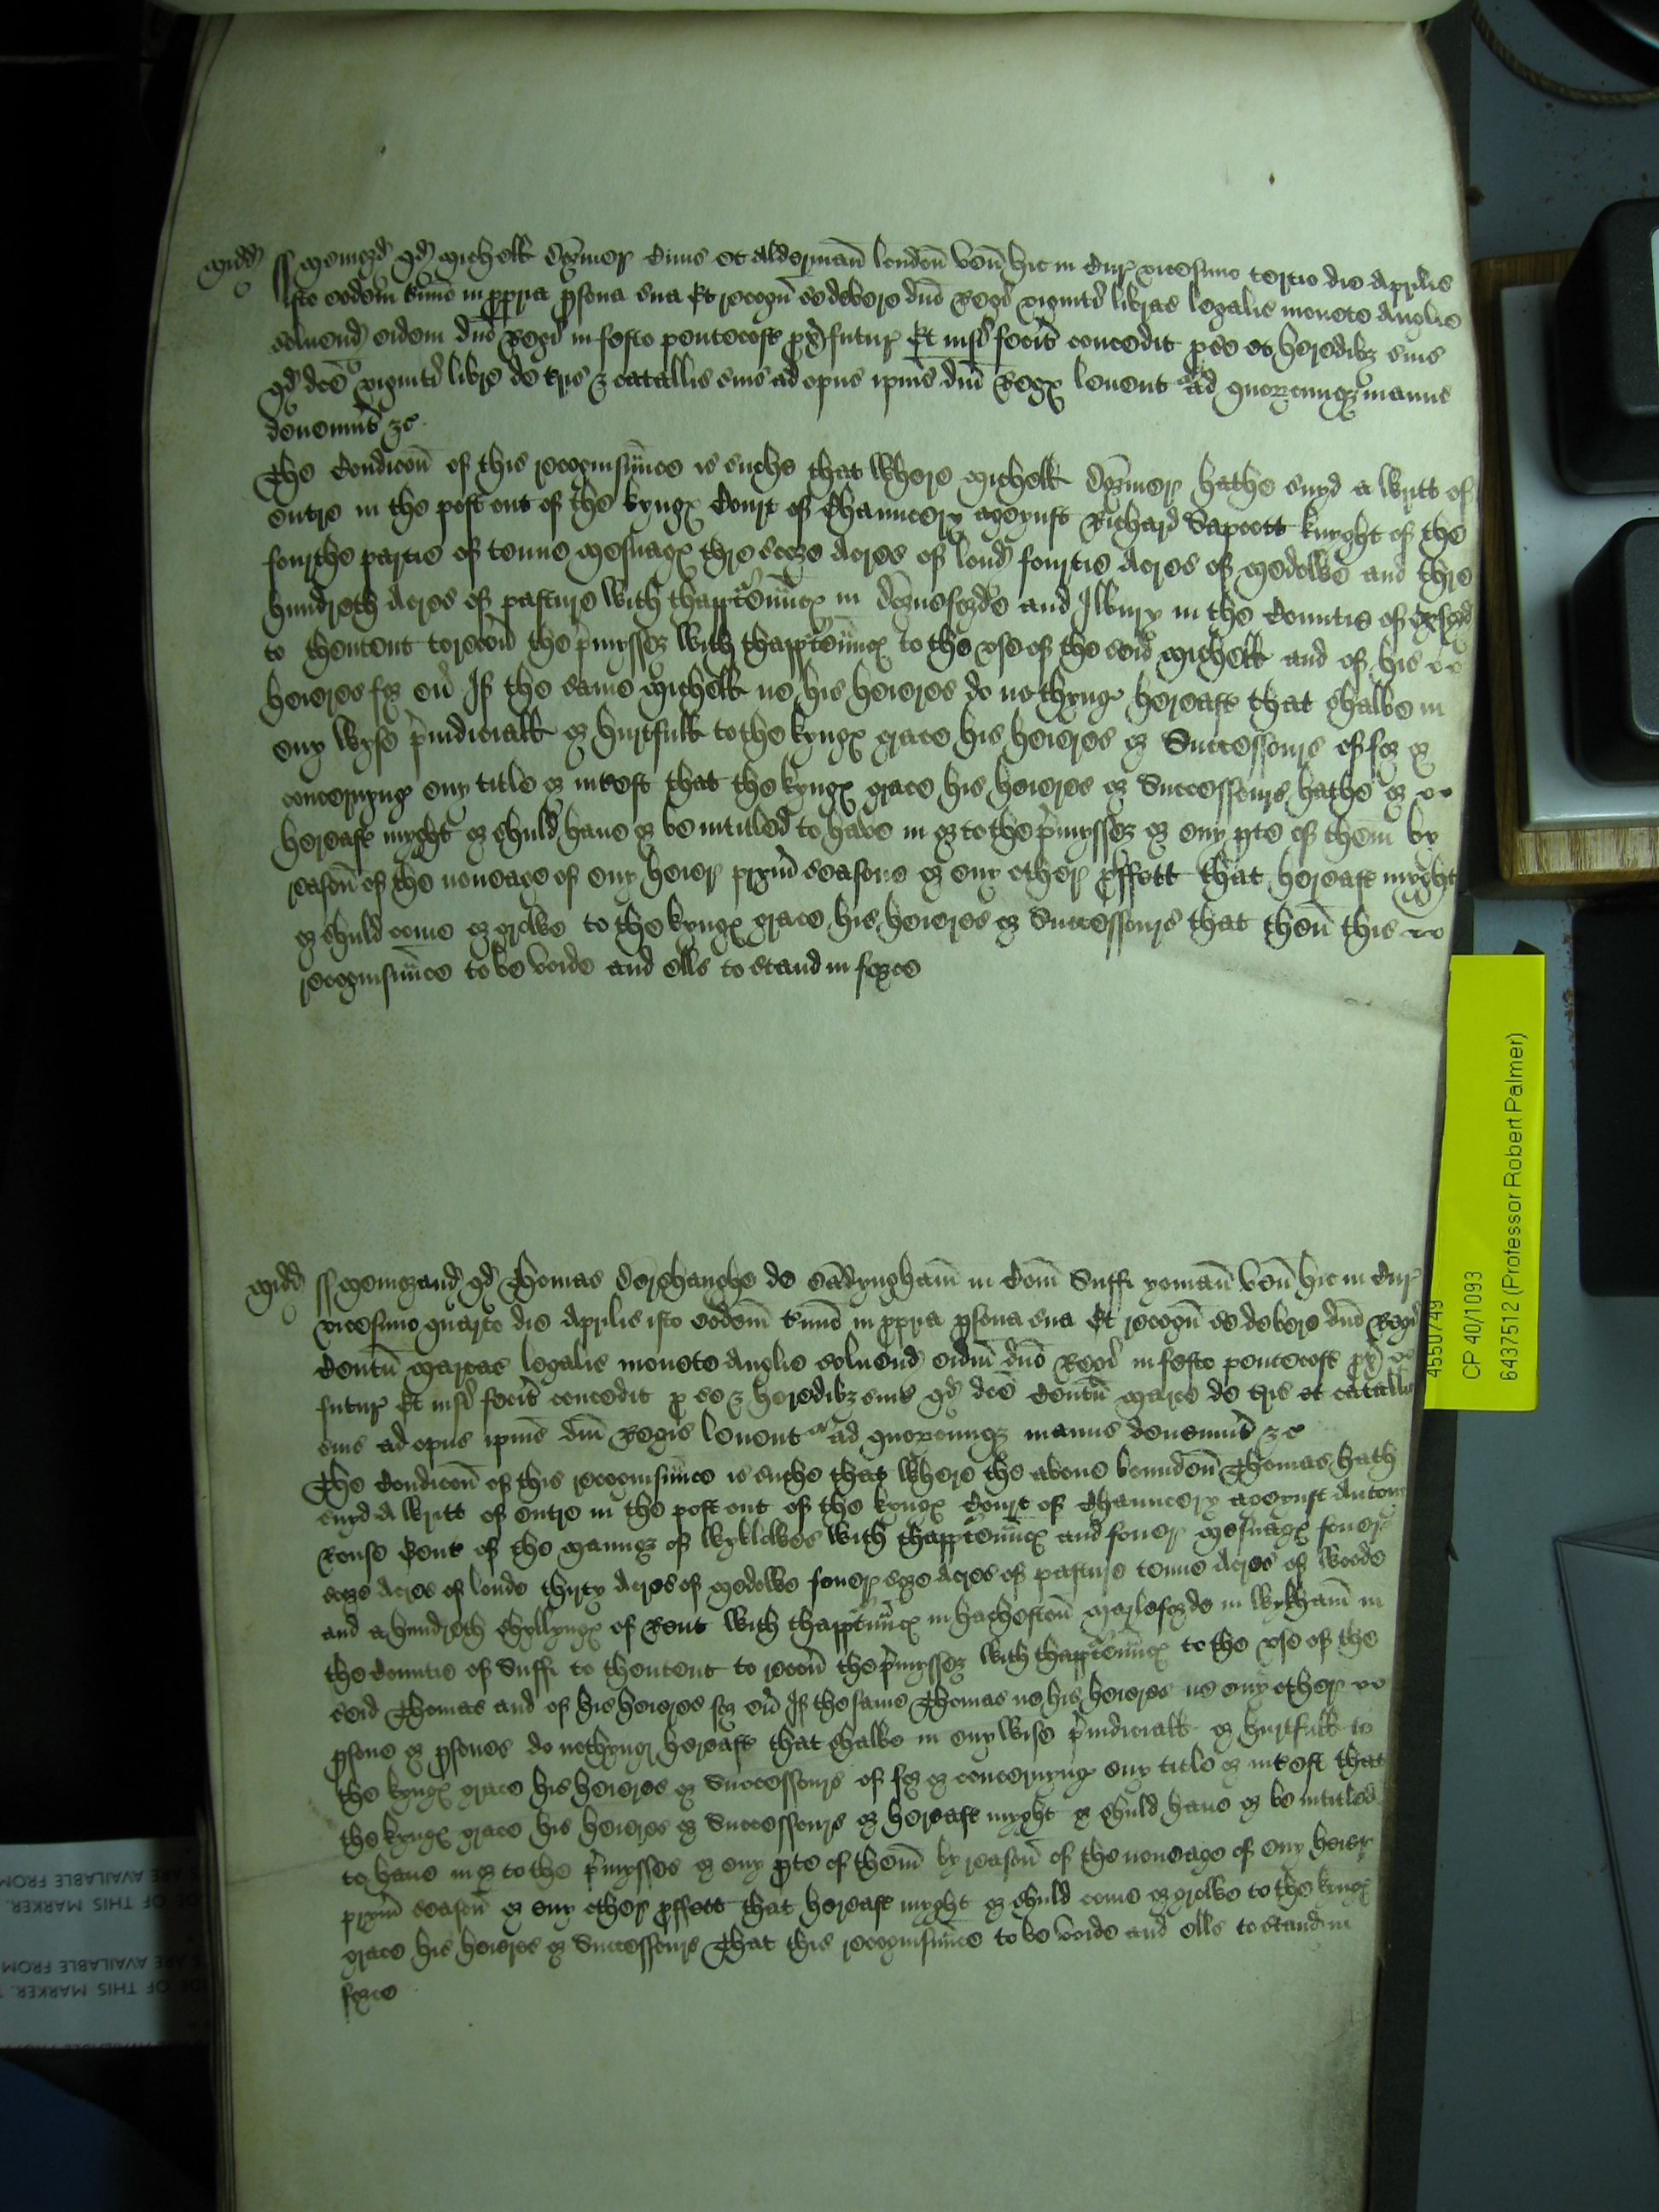 Midd ss Memord qd Michell Dormer Civis et Aldermann london ven hic in Cur vicesimo tertio die Aprilis
isto eodem t'mino in ppria psona sua Et recogn se debere dno Regi viginti libras legalis monete Anglie
solvend eidem dno Regi in festo pentecost px futur Et nisi fec'it concedit p se et heredibz suis
qd dce viginti libre de tris & catallis suis ad opus ipius dni Regx levent' Ad quorcumqz manus
devenint &c
The Condicon of this recognisunce is suche that where Michell Dormer hathe sued a writt of
entre in the post out of the kyngx Court of Chauncery ageynst Richard Sapcott knyght of the
fourthe partie of tenne Mesuagx thre score Acres of lond fourtie Acres of Medowe and thre
hundreth Acres of pasture with thapptenncx in and Ilbury in the Countie of Oxford
to thentent to recov the p'mysses with thapptenncx to the use of the seid Michell and of his
heieres for ev' If the same Michell ne his heieres do no thyng hereaft that shalbe in
eny wyse p'iudiciall or hurtfull to the kyngx grace his heieres or Successours of for or
concernyng eny title or int'est that the kyngx grace his heieres or Successours hathe or
hereaft myght or shuld have or be intitled to have in or to the p'mysses or eny pte of them by
reason of the noneage of eny heier prym' seasone or eny other pffett that hereaft myght
or shuld come or growe to the kyngx grace his heieres or Successours that then this
recognisunce to be voide and ells to stand in force
Midd ss Memorand qd Thomas Derehaughe de Badyngham in Com Suff yoman ven hic in Cur
vicesimo quarto die Aprilis isto eodem t'mino in ppria psona sua Et recogn se debere dno Regi
Centu Marcas legalis monete Anglie solvend eidm dno Regi in festo pentecost px
futur Et nisi fec'it concedit p se & heredibz suis qd dce Centu Marce de tris et catallis
suis ad opus ipius dni Regis levent' ad quorcumqz manus devenint &c
The Condicon of this recognisunce is suche that where the above bounden Thomas hath
sued A writt of entre in the post out of the kyngx Court of Chauncery ageynst Antony
Rouse Gent of the Mannor of Wyklowes with thapptenncx and fouer Mesuagx fouer
score Acres of londe thyrty Acres of Medowe fouer score Acres of pasture tenne Acres of Woode
and a hundreth Shyllyngx of Rent with thapptenncx in hacheston Marlesforde in Wykham in
the Countie of Suff to thentent to recov the p'mysses with thapptenncx to the use of the
seid Thomas and of his heieres for ev' If the same Thomas ne his heieres ne eny other
psone or psones do nothyng hereaft that shalbe in eny wise p'iudiciall or hurtfull to
the kyngx grace his heieres or Successours of for or concernyng eny title or int'est that
the kyngx grace his heieres or Successours or hereaft myght or shuld have or be intitled
to have in or to the p'mysses or eny pte of them by reason of the noneage of eny heier
prym' season or eny other pffett that hereaft myght or shuld come or growe to the kyngx
grace his heieres or Successours That this recognisunce to be voide and ells to stand in
force
4550749
CP 40/1093
6437512 (Professor Robert Palmer)
ARE AVAILABLE FROM
DE OF THIS MARKER.